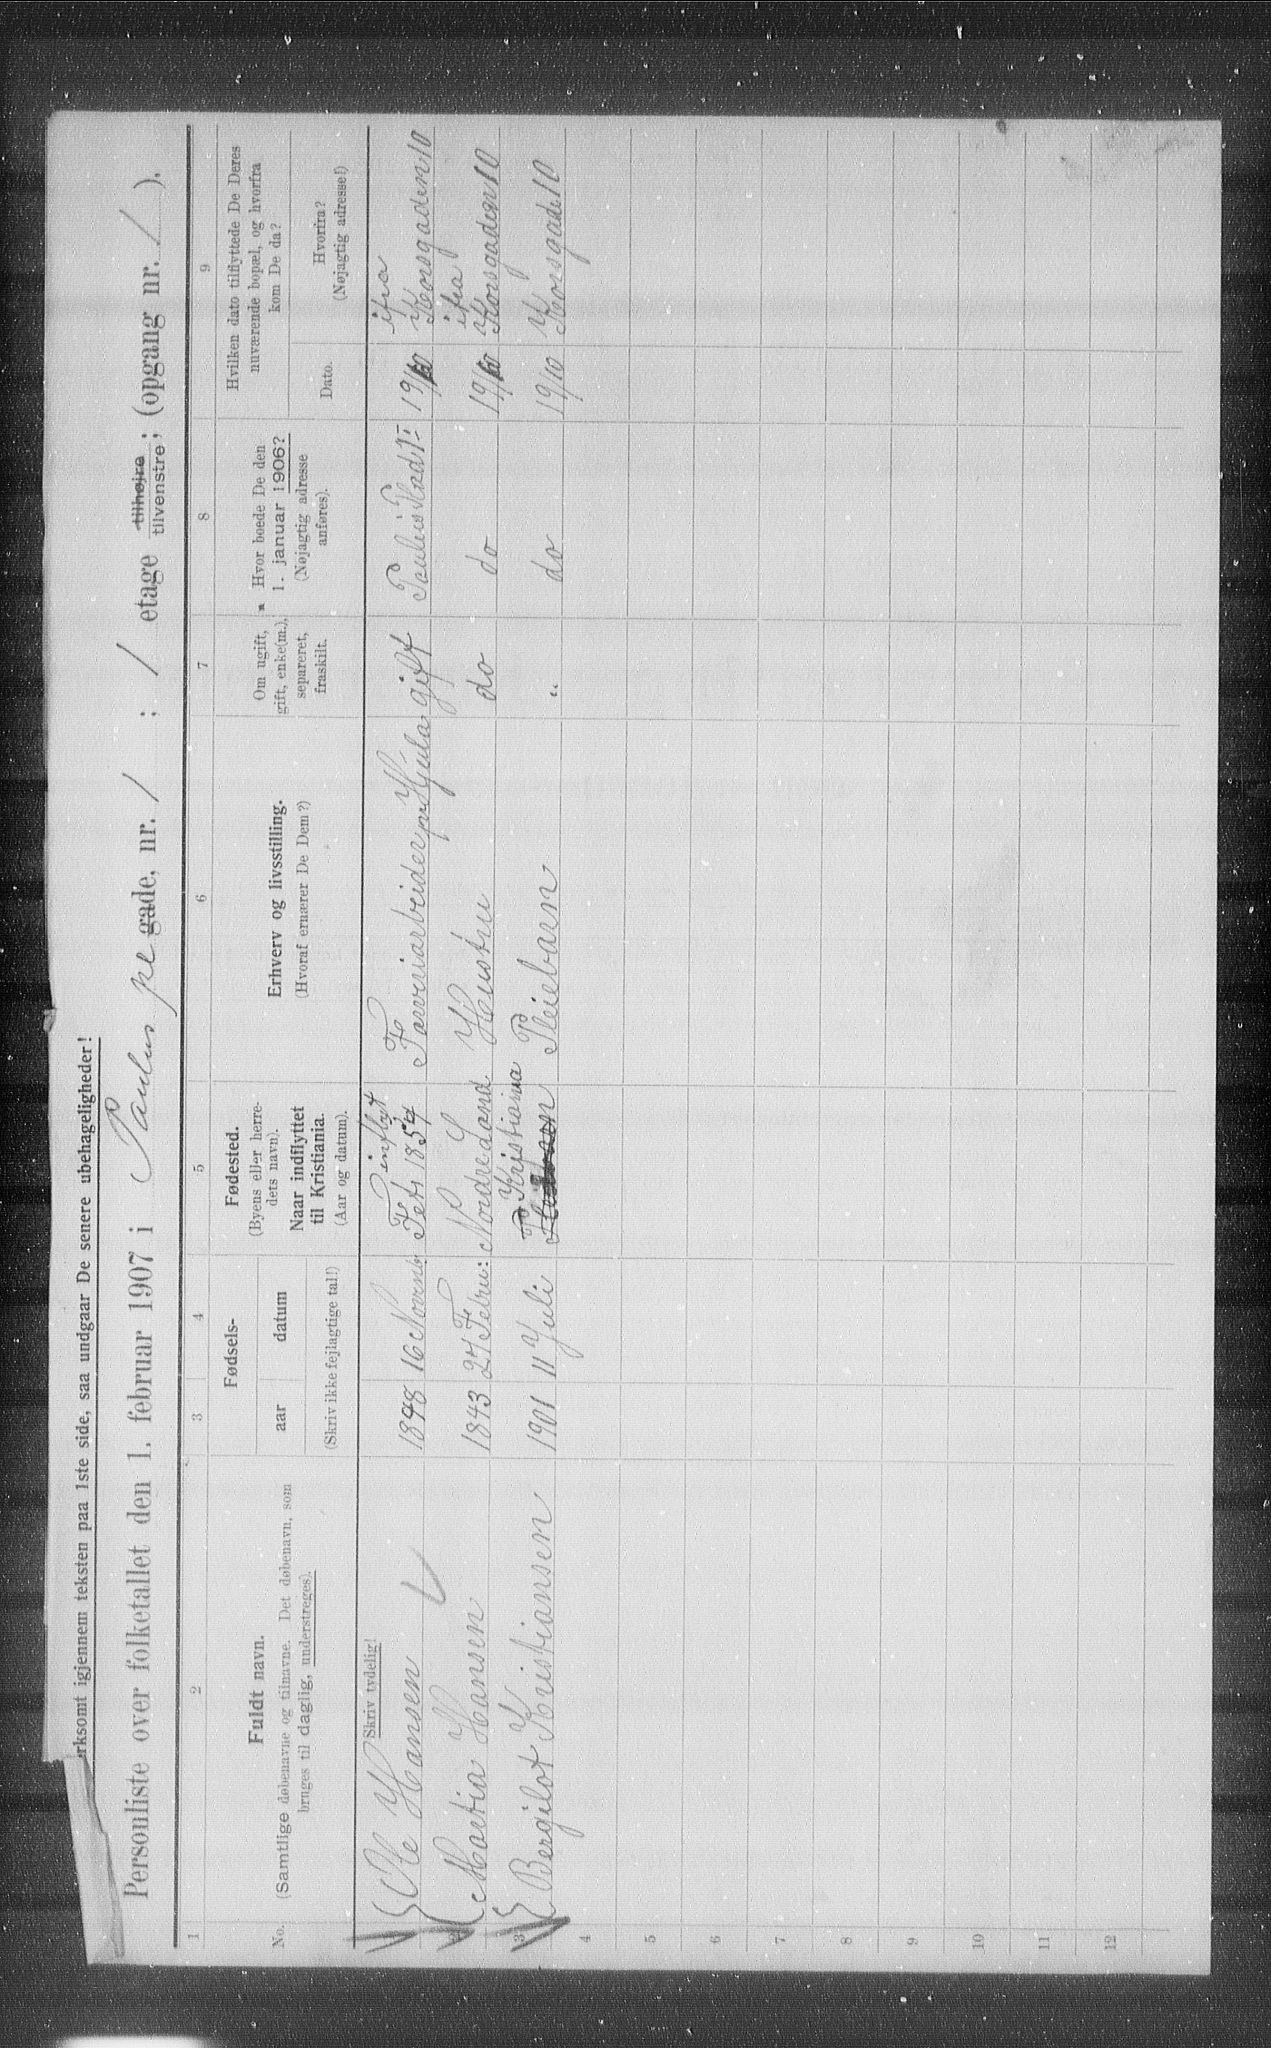 rksomt igjennem teksten paa 1ste side, saa undgaar De senere ubehageligheder!
Personliste over folketallet den 1. februar 1907 i Paulus pl gade, nr. 1 ; 1 etage tilhøjre tilvenstre; (opgang nr. 1 ).
1 2 3 4 5 6 7 8 9
No.
Fuldt navn.
(Samtlige døbenavne og tilnavne. Det døbenavn, som
bruges til daglig, understreges).
Fødsels-
aar datum
(Skriv ikke fejlagtige tal!)
Fødested.
(Byens eller herre-
dets navn).
Naar indflyttet
til Kristiania.
(Aar og datum).
Erhverv og livsstilling.
(Hvoraf ernærer De Dem?)
Om ugift,
gift, enke(m.),
separeret,
fraskilt.
Hvor boede De den
1. januar 1906?
(Nøjagtig adresse
anføres).
Hvilken dato tilflyttede De Deres
nuværende bopæl, og hvorfra
kom De da?
Dato.
Hvorfra?
(Nøjagtig adresse!)
Skriv tydelig!
Ole Hansen 1848 16 Novemb Fet indflyt 1854 Farveriarbeider pr Hjula gift Paulus Plads 1 19/10 ifra Korsgaden 10
2 Martia Hansen 1843 27 Febru: Nordre Land Hustru do do 19/10 ifra Korsgaden 10
3 Bergilot Kristiansen 1901 11 Juli Kristiania Pleiebarn " do 19/10 Korsgade 10
4
5
6
7
8
9
10
11
12